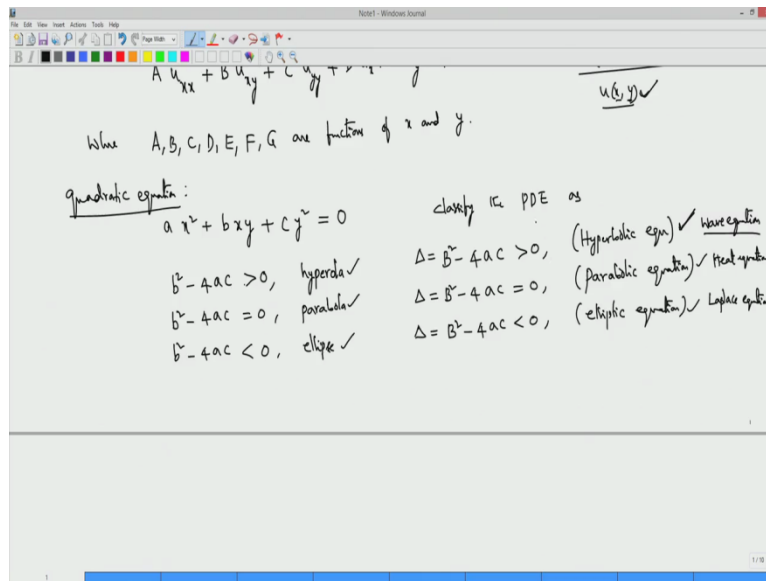 Note1 - Windows Journal
File Edit View Insert Actions Tools Help
Page Width
B I
A u_xx + B u_xy + C u_yy +
u(x, y) ✓
Where A, B, C, D, E, F, G are function of x and y.
quadratic equation :
a x² + b xy + c y² = 0
b² - 4ac > 0, hyperola ✓
b² - 4ac = 0, parabola ✓
b² - 4ac < 0, ellipse ✓
classify the PDE as
Δ = B² - 4AC > 0, (Hyperbolic equn) ✓ wave equation
Δ = B² - 4AC = 0, (parabolic equation) ✓ Heat equation
Δ = B² - 4AC < 0, (elliptic equation) ✓ Laplace equation
1
1 / 10
1